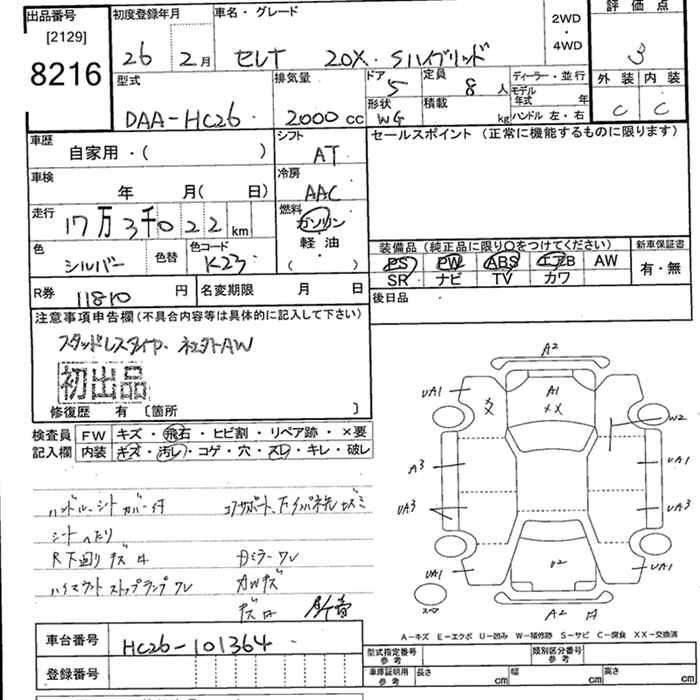 出品番号 初度登録年月 車名・グレード 評価点
[2129]
8216 26年 2月 セレナ 20X.Sハイブリッド 2WD・4WD 3
型式 排気量 ドア 5 定員 8人 ディーラー・並行 外装 内装
DAA-HC26 2000cc 形状 WG 積載 kg モデル年式 年 C C
ハンドル 左・右
車歴 自家用・( ) シフト AT セールスポイント (正常に機能するものに限ります)
車検 年 月( 日) 冷房 AAC
走行 17万3千022km 燃料 ガソリン・軽油 ( )
色 シルバー 色替 色コード K23 装備品 (純正品に限り○をつけてください) 新車保証書
PS PW ABS エアB AW 有・無
SR ナビ TV カワ
R券 11810円 名変期限 月 日 後日品
注意事項申告欄(不具合内容等は具体的に記入して下さい)
スタッドレスタイヤ. 社外AW
初出品
修復歴 有 〔箇所 〕
検査員 FW キズ・飛石・ヒビ割・リペア跡・×要
記入欄 内装 キズ・汚レ・コゲ・穴・スレ・キレ・破レ
ハンドル、シートカバー付 コアサポート、下イバネ先キズミ
シートへたり
R下廻りキズサ 左ミラーワレ
ハイマウントストップランプワレ AWキズ
A2
UA1 A1
XX XX W2
A3 UA1
UA3 UA3
UA1 U2 UA1
スペア A2 サ
A-キズ E-エクボ U-凹み W-補修跡 S-サビ C-腐食 XX-交換済
車台番号 HC26-101364
登録番号
型式指定番号 参考 類別区分番号 参考
車庫証明用 参考 長さ cm 幅 cm 高さ cm